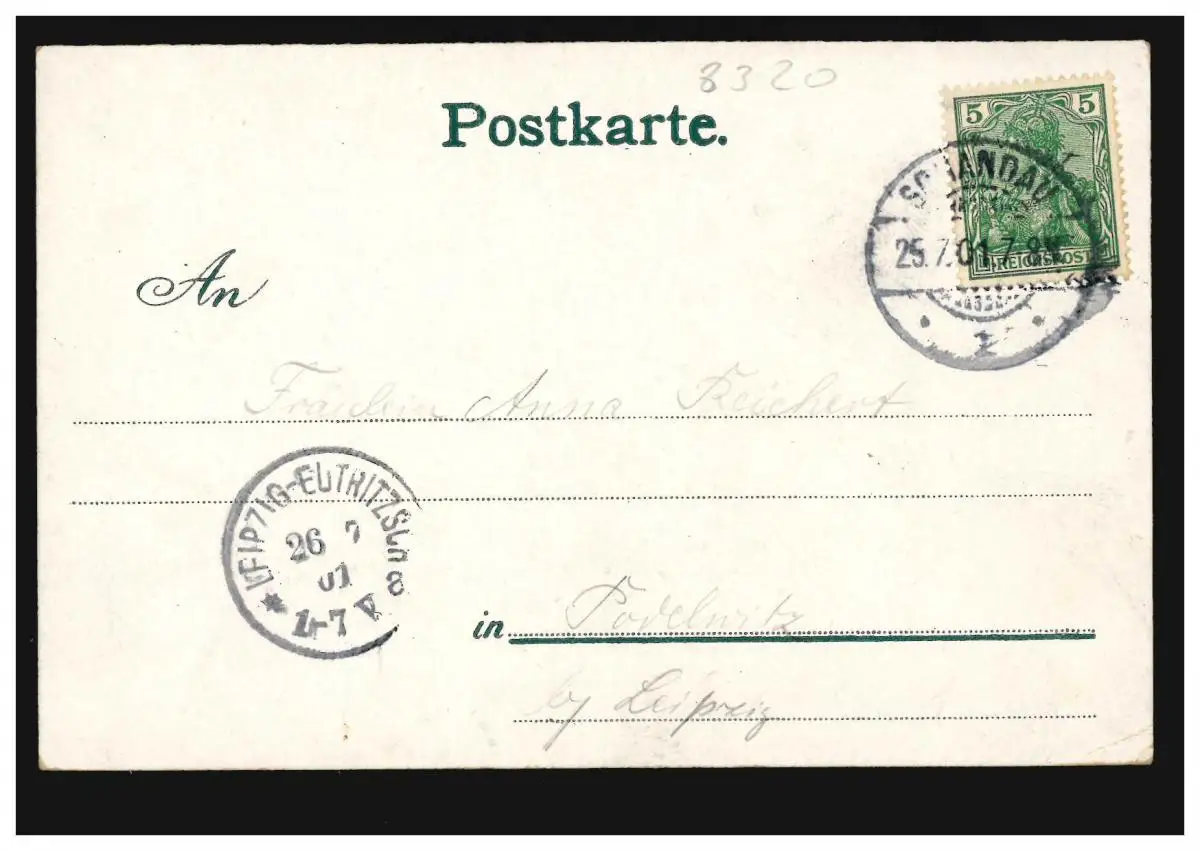 8320
Postkarte.
5 5
REICHSPOST
SCHANDAU
25.7.01.7-8N.
1
An
Fräulein Anna Reichert
LEIPZIG-EUTRITZSCH
26 7
01
4-7 V
a
in Podelwitz
by Leipzig